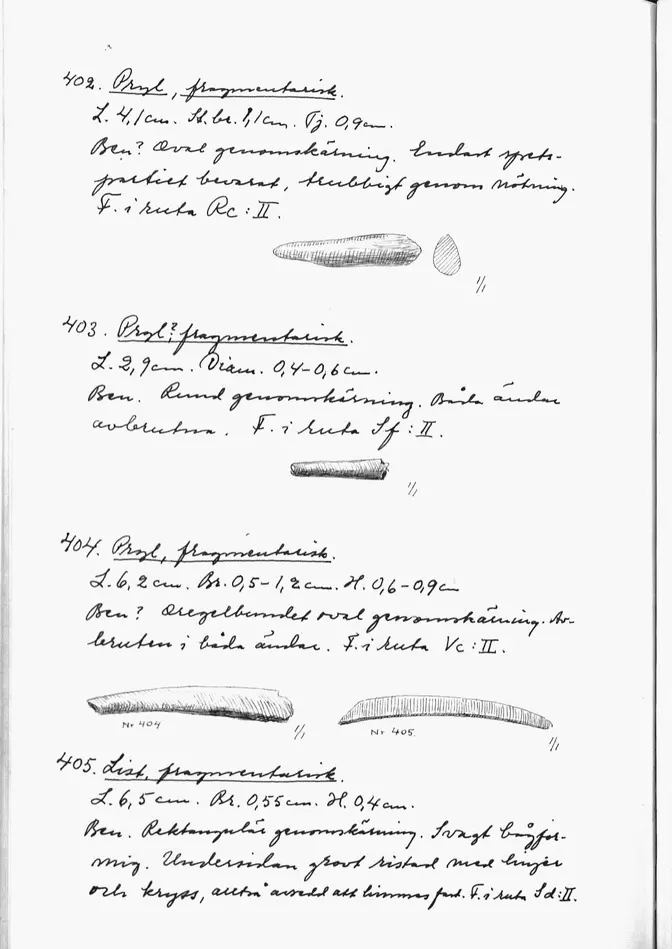 402. Pryl, fragmentarisk.
L. 4,1 cm. St. br. 1,1 cm. Tj. 0,9 cm.
Ben? Oval genomskärning. Endast spets-
partiet bevarat, trubbigt genom nötning.
F. i ruta Rc : II.
1/1
403. Pryl?, fragmentarisk.
L. 2,9 cm. Diam. 0,4-0,6 cm.
Ben. Rund genomskärning. Båda ändar
avbrutna. F. i ruta Sf : II.
1/1
404. Pryl, fragmentarisk.
L. 6,2 cm. Br. 0,5-1,2 cm. H. 0,6-0,9 cm
Ben? Oregelbundet oval genomskärning. Av-
bruten i båda ändar. F. i ruta Vc : II.
Nr 404 1/1
Nr 405. 1/1
405. List, fragmentarisk.
L. 6,5 cm. Br. 0,55 cm. H. 0,4 cm.
Ben. Rektangulär genomskärning. Svagt bågfor-
mig. Undersidan grovt ristad med linjer
och kryss, alltså avsedd att limmas fast. F. i ruta Sd : II.